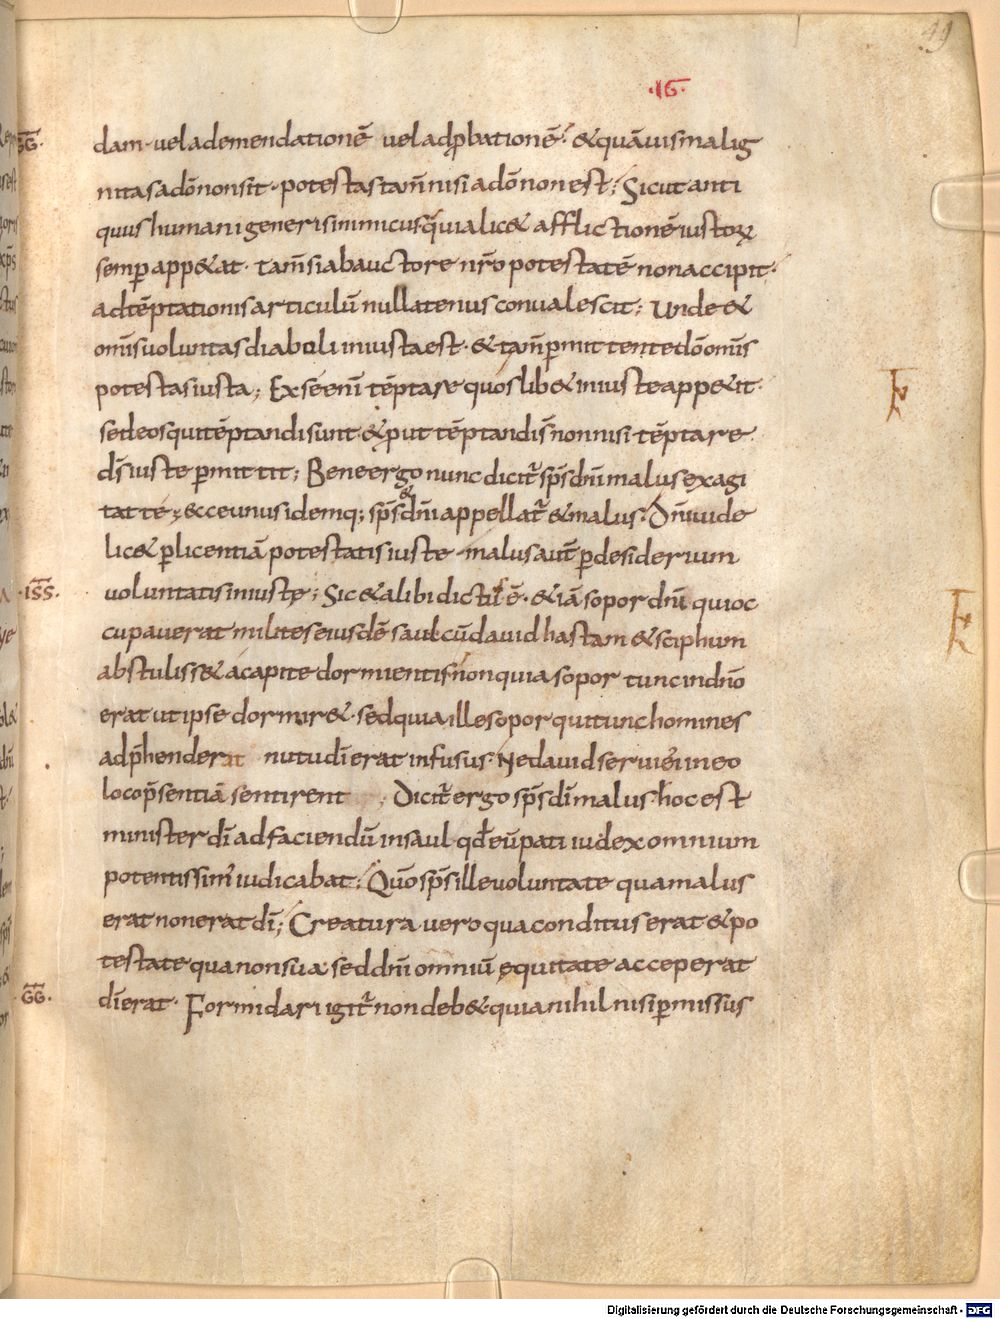 49
·16·
GG·
dam · vel ad emendationē vel ad ꝓbationē· &quāuis malig
nitas a dō non sit · potestas tam̄ nisi a dō non est; Sicut anti
quus humani generis inimicus q̄uialic& afflictionē iustoꝝ
semꝑ app&at · tam̄ si ab auctore nr̄o potestatē non accipit·
ad tēptationis articulū nullatenus conualescit; Unde &
omīs uoluntas diaboli iniusta est · & tam̄ ꝑmittente dō omīs
potestas iusta; Ex se enī tēptare quoslib& iniuste app&it·
sed eos qui tēptandi sunt · & put tēptandi s̄ non nisi tēptare
ds̄ iuste ꝑmittit; Bene ergo nunc dicit̄ sps̄ dn̄i malus exagi
tat te · ecce unus idemq; sps̄ & dn̄i appellat̄ & malus· Dn̄i uide
lic& ꝑ licentiā potestatis iuste · malus aut̄ ꝑ desiderium
·ISS·
uoluntatis iniustę; Sic & alibi dictū ē · & iā sopor dn̄i qui oc
cupauerat milites eiusdē saul cū dauid hastam & sciphum
abstuliss& a capite dormientis · non quia sopor tunc in dn̄o
erat ut ipse dormir& · sed quia ille sopor qui tunc homines
adp̄henderat nutu dī erat infusus· Ne dauid seruī in eo
loco p̄sentiā sentirent; Dicit̄ ergo sps̄ dī malus · hoc est
minister dī ad faciendū in saul qd̄ eū pati iudex omnium
potentissim' iudicabat; Quō sps̄ ille uoluntate qua malus
erat non erat dī; Creatura uero qua conditus erat & po
testate qua non sua sed dn̄i omniū ęquitate acceperat
GG·
dī erat· Formidari igit̄ non deb& · quia nihil nisi ꝑmissus
Digitalisierung gefördert durch die Deutsche Forschungsgemeinschaft - DFG